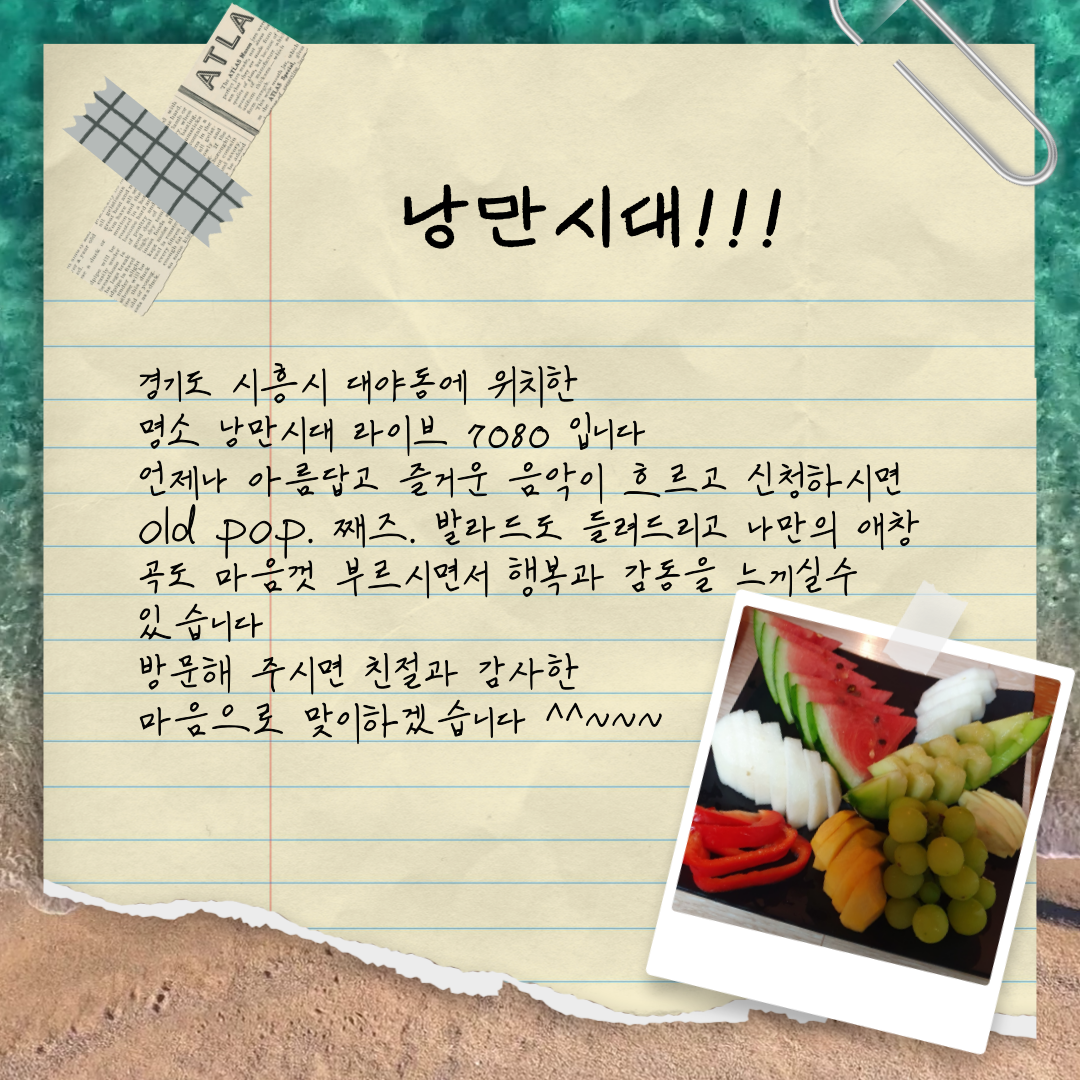 ATLA
낭만시대!!!
경기도 시흥시 대야동에 위치한
명소 낭만시대 라이브 7080 입니다
언제나 아름답고 즐거운 음악이 흐르고 신청하시면
old pop. 째즈. 발라드도 들려드리고 나만의 애창
곡도 마음껏 부르시면서 행복과 감동을 느끼실수
있습니다
방문해 주시면 친절과 감사한
마음으로 맞이하겠습니다 ^^~~~